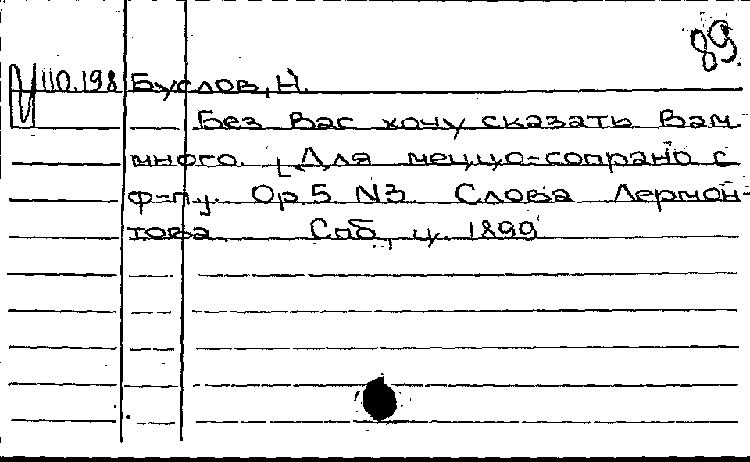 89.
110.198 Буслов, Н.
Без Вас хочу сказать Вам
много. [Для меццо-сопрано с
ф-п.]. Ор.5 N3 Слова Лермон-
това Спб, ц. 1899